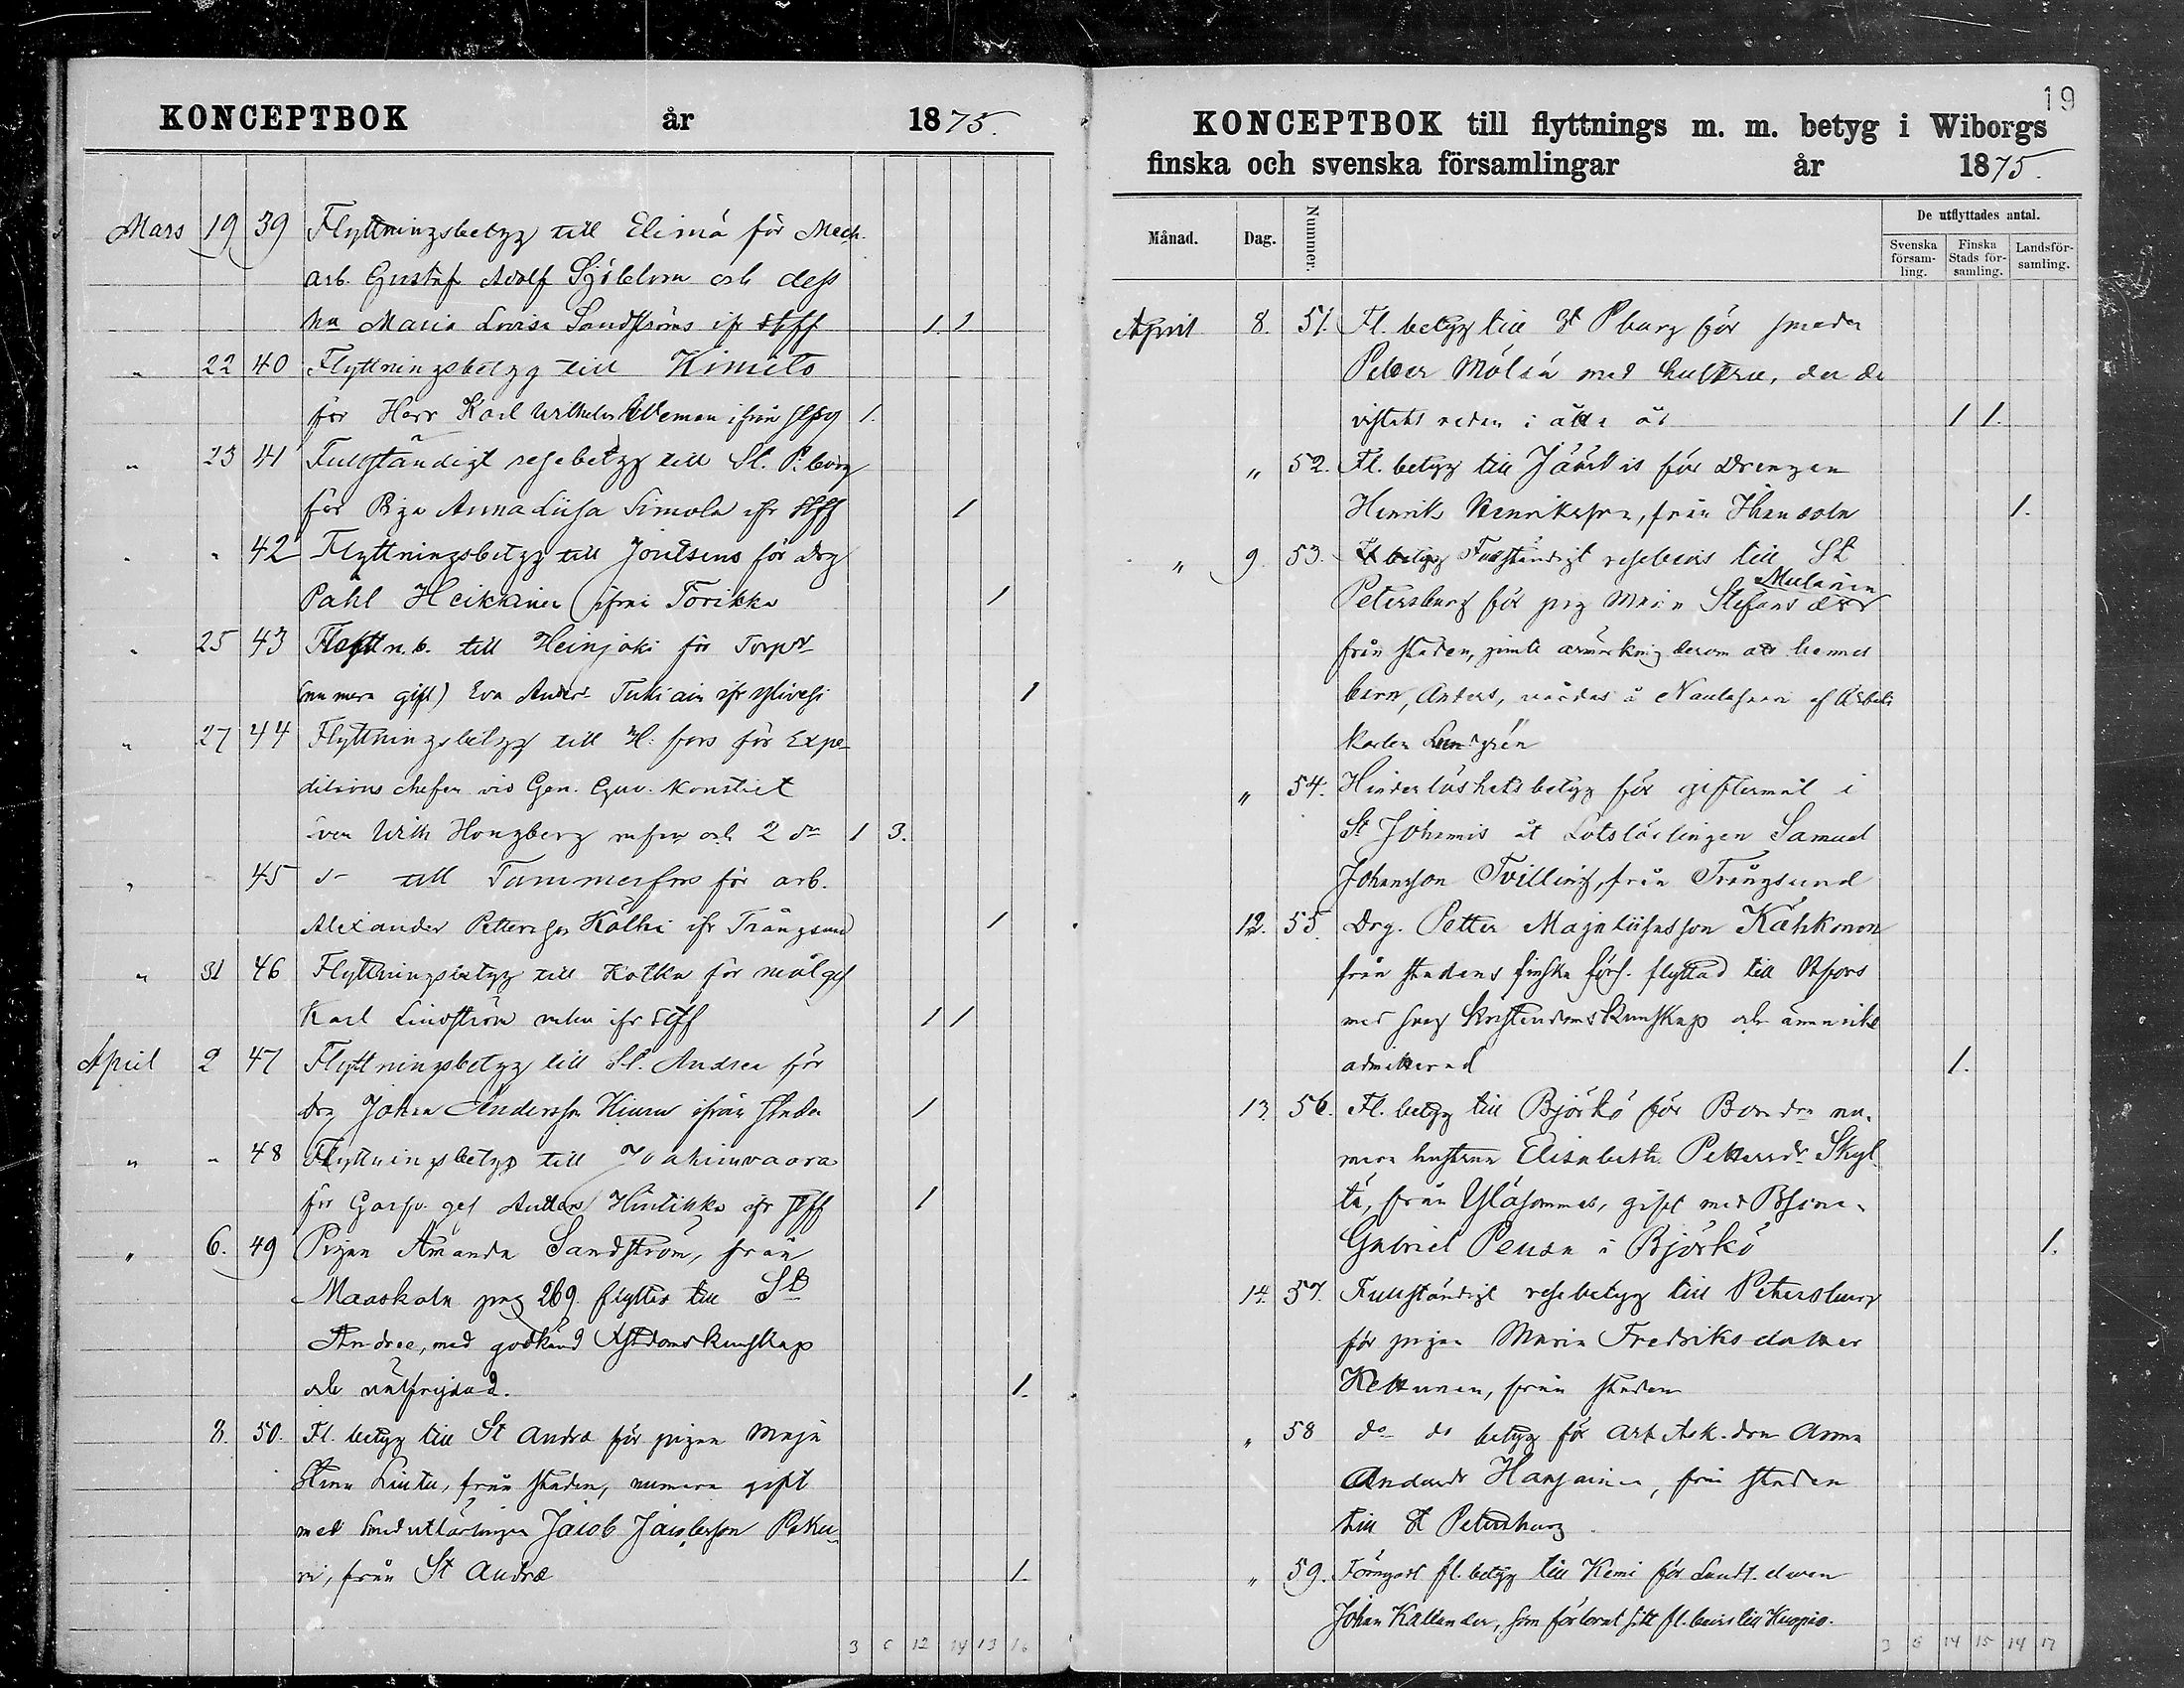 KONCEPTBOK år 1875.
Mars 19 39 Flyttningsbetyg till Elimä för Mech.
arb. Gustaf Adolf Sjöblom och dess
hu Maria Lovisa Sandströms ifr stff 1. 1
" 22 40 Flyttningsbetyg till Kimito
för Herr Karl Wilhelm ifrån 1.
" 23 41 Fullständigt resebetyg till St. P:burg
för Piga Anna Liisa Simola ifr stff 1
" " 42 Flyttningsbetyg till Joutseno för Drg
Påhl Heikkinen ifrån Torikka 1
" 25 43 Flyttn.b. till Heinjoki för Torpd
(nu mera gift) Eva Andersd Tukiain ifr 1
" 27 44 Flyttningsbetyg till H:fors för Expe-
ditions chefen vid Gen. Guv. Kansliet
Iver Wilh Hougberg och 2 dr 1 3.
" " 45 d- till Tammerfors för arb.
Alexander Pettersson Kälhi ifr Trångsund 1
" 31 46 Flyttningsbetyg till Kotka för målges
Karl Lindström ifr stff 1 1
April 2 47 Flyttningsbetyg till St. Andrea för
drg Johan Andersson Kiuru ifrån staden 1
" " 48 Flyttningsbetyg till Joakimvaara
för Garfv. ges Anders Hintikka ifr stff 1
" 6. 49 Pigan Amanda Sandström, från
Maaskola pag 269. flyttar till St
Andree, med godkänd Xstdomskunskap
och nattfrejdad. 1.
8. 50. Fl. betyg till St Andra för pigan Maja
Stina Lintu, från staden, numera gift
med Smedutlärlingen Jacob Jacobsson Paku-
ri, från St Andra 1
3 6 12 14 13 16
19
KONCEPTBOK till flyttnings m. m. betyg i Wiborgs
finska och svenska församlingar år 1875.
Månad. Dag. Nummer. De utflyttades antal.
Svenska församling. Finska Stads församling. Landsförsamling.
April 8. 51. Fl. betyg till St Pburg för smeden
Petter Mölsä med hustru, der de
vistats redan i åtta år 1 1.
" 52. Fl. betyg till Jääskis för Drengen
Henrik Henriksson, från Ihansola 1.
" 9. 53. Fl betyg Fullständigt resebevis till St
Mularinen
Petersburg för pig Maria Stefans dotter
från staden, jemte anmärkning derom att hennes
barn, Anders, vårdas å Naulasaari af Arbets
karlen Lundgrén
" 54. Hinderlöshetsbetyg för giftermål i
St Johannis åt Lotslärlingen Samuel
Johansson Tvilling, från Trångsund
12. 55. Drg. Petter Majaliisasson Kähkönen
från stadens finska förs. flyttad till
med svag kristendomskunskap och ännu icke
admitterad 1.
13. 56. Fl. betyg till Björkö för Bondedr nu-
mera hustrun Elisabeth Pettersdr Skyt-
tä, från Yläsommes, gift med Bsone-
Gabriel Peusa i Björkö 1.
14. 57. Fullständigt resebetyg till Petersburg
för pigan Maria Fredriksdotter
Kettunen, från staden
" 58 do do betyg för Arb.dr Anna
Andersdr Hansain, från staden
till St Petersburg.
" 59. Förnyadt fl. betyg till Kemi för Landt. elwen
Johan Kallander, som förlorat sitt fl. bevis till Kuopio.
3 6 14 15 14 17